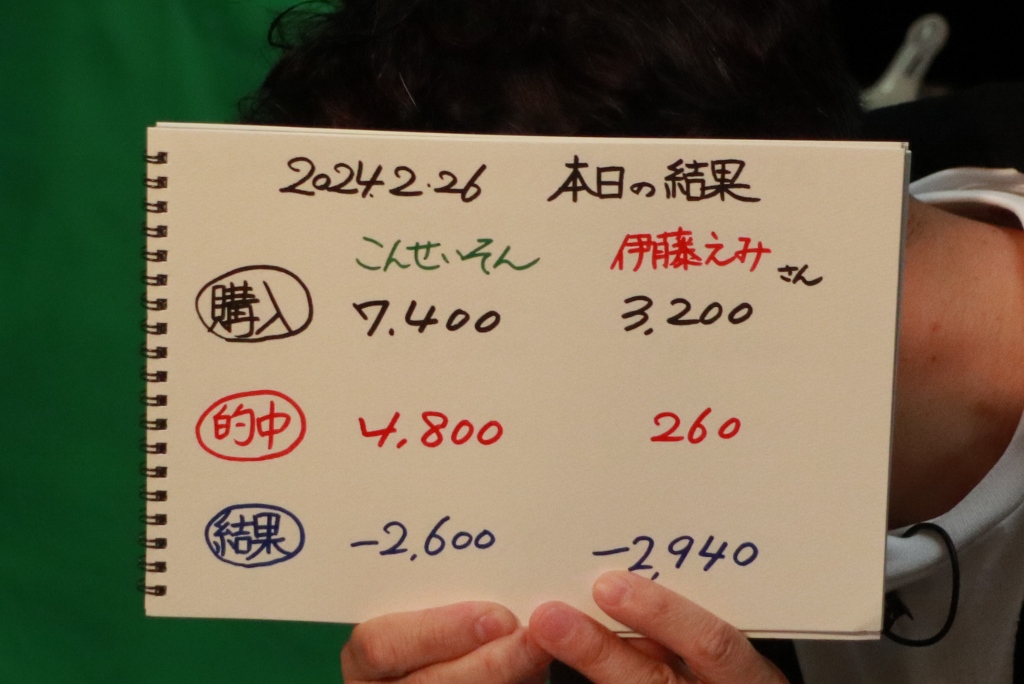 2024.2.26 本日の結果
こんせいそん 伊藤えみさん
購入 7,400 3,200
的中 4,800 260
結果 -2,600 -2,940